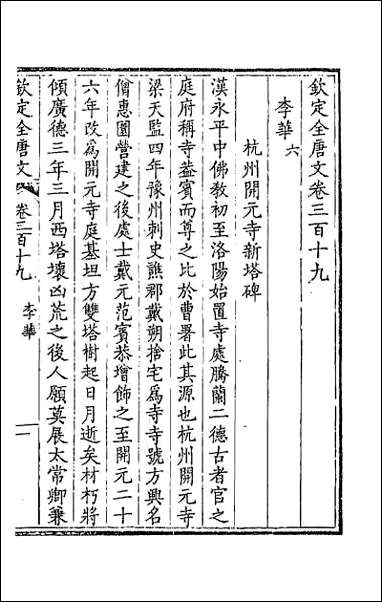 欽定全唐文卷三百十九
李華 六
杭州開元寺新塔碑
漢永平中佛教初至洛陽始置寺處騰蘭二德古者官之
庭府稱寺葢賓而尊之比於曹署此其源也杭州開元寺
梁天監四年豫州刺史譙郡戴朔捨宅爲寺寺號方興名
僧惠圜營建之後處士戴元范賓恭增飾之至開元二十
六年改爲開元寺庭基坦方雙塔樹起日月逝矣材朽將
傾廣德三年三月西塔壞凶荒之後人願莫展太常卿兼
欽定全唐文 卷三百十九 李華 一